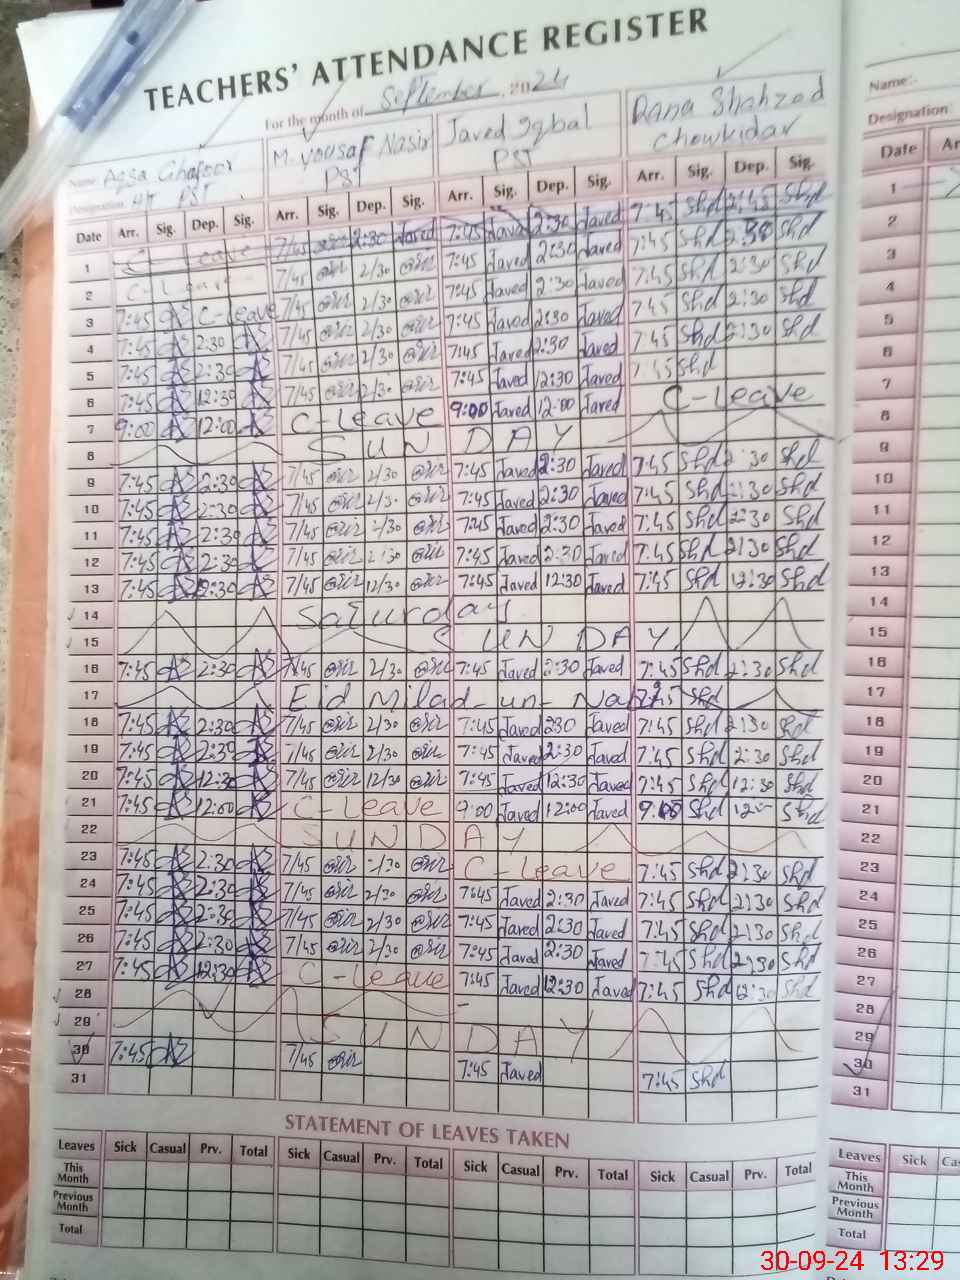 TEACHERS' ATTENDANCE REGISTER
For the month of September, 2024
Name: Aqsa Ghafoor M-yousaf Nasir Javed Iqbal Rana Shahzad
Designation: PST PST PST Chowkidar
Date Arr. Sig. Dep. Sig. Arr. Sig. Dep. Sig. Arr. Sig. Dep. Sig. Arr. Sig. Dep. Sig.
7/45 2:30 Javed 7:45 Javed 2:30 Javed 7:45 Shd 2:45 Shd
1 C-Leave 7/45 2/30 7:45 Javed 2:30 Javed 7:45 Shd 2:30 Shd
2 C-Leave 7/45 2/30 7:45 Javed 2:30 Javed 7:45 Shd 2:30 Shd
3 7:45 C-Leave 7/45 2/30 7:45 Javed 2:30 Javed 7:45 Shd 2:30 Shd
4 7:45 2:30 7/45 2/30 7:45 Javed 2:30 Javed 7:45 Shd 2:30 Shd
5 7:45 2:30 7/45 2/30 7:45 Javed 12:30 Javed 7:45 Shd
6 7:45 12:30 C-Leave 9:00 Javed 12:00 Javed C-Leave
7 9:00 12:00
8 SUNDAY
9 7:45 2:30 7/45 2/30 7:45 Javed 2:30 Javed 7:45 Shd 2:30 Shd
10 7:45 2:30 7/45 2/30 7:45 Javed 2:30 Javed 7:45 Shd 2:30 Shd
11 7:45 2:30 7/45 2/30 7:45 Javed 2:30 Javed 7:45 Shd 2:30 Shd
12 7:45 2:30 7/45 2:30 7:45 Javed 2:30 Javed 7:45 Shd 2:30 Shd
13 7:45 12:30 7/45 12/30 7:45 Javed 12:30 Javed 7:45 Shd 12:30 Shd
14 Saturday
15 SUNDAY
16 7:45 2:30 7/45 2/30 7:45 Javed 2:30 Javed 7:45 Shd 2:30 Shd
17 Eid Milad-un-Nabi 7:45 Shd
18 7:45 2:30 7/45 2/30 7:45 Javed 2:30 Javed 7:45 Shd 2:30 Shd
19 7:45 2:30 7/45 2/30 7:45 Javed 2:30 Javed 7:45 Shd 2:30 Shd
20 7:45 12:30 7/45 12/30 7:45 Javed 12:30 Javed 7:45 Shd 12:30 Shd
21 7:45 12:00 C-Leave 9:00 Javed 12:00 Javed 9:00 Shd 12:00 Shd
22 SUNDAY
23 7:45 2:30 7/45 2/30 C-Leave 7:45 Shd 2:30 Shd
24 7:45 2:30 7/45 2/30 7:45 Javed 2:30 Javed 7:45 Shd 2:30 Shd
25 7:45 2:30 7/45 2/30 7:45 Javed 2:30 Javed 7:45 Shd 2:30 Shd
26 7:45 2:30 7/45 2/30 7:45 Javed 2:30 Javed 7:45 Shd 2:30 Shd
27 7:45 12:30 C-Leave 7:45 Javed 12:30 Javed 7:45 Shd 12:30 Shd
28
29 SUNDAY
30 7:45 7/45 7:45 Javed 7:45 Shd
31
STATEMENT OF LEAVES TAKEN
Leaves Sick Casual Prv. Total Sick Casual Prv. Total Sick Casual Prv. Total Sick Casual Prv. Total
This Month
Previous Month
Total
Name:-
Designation:
Date
1
2
3
4
5
6
7
8
9
10
11
12
13
14
15
16
17
18
19
20
21
22
23
24
25
26
27
28
29
30
31
Leaves Sick
This Month
Previous Month
Total
30-09-24 13:29